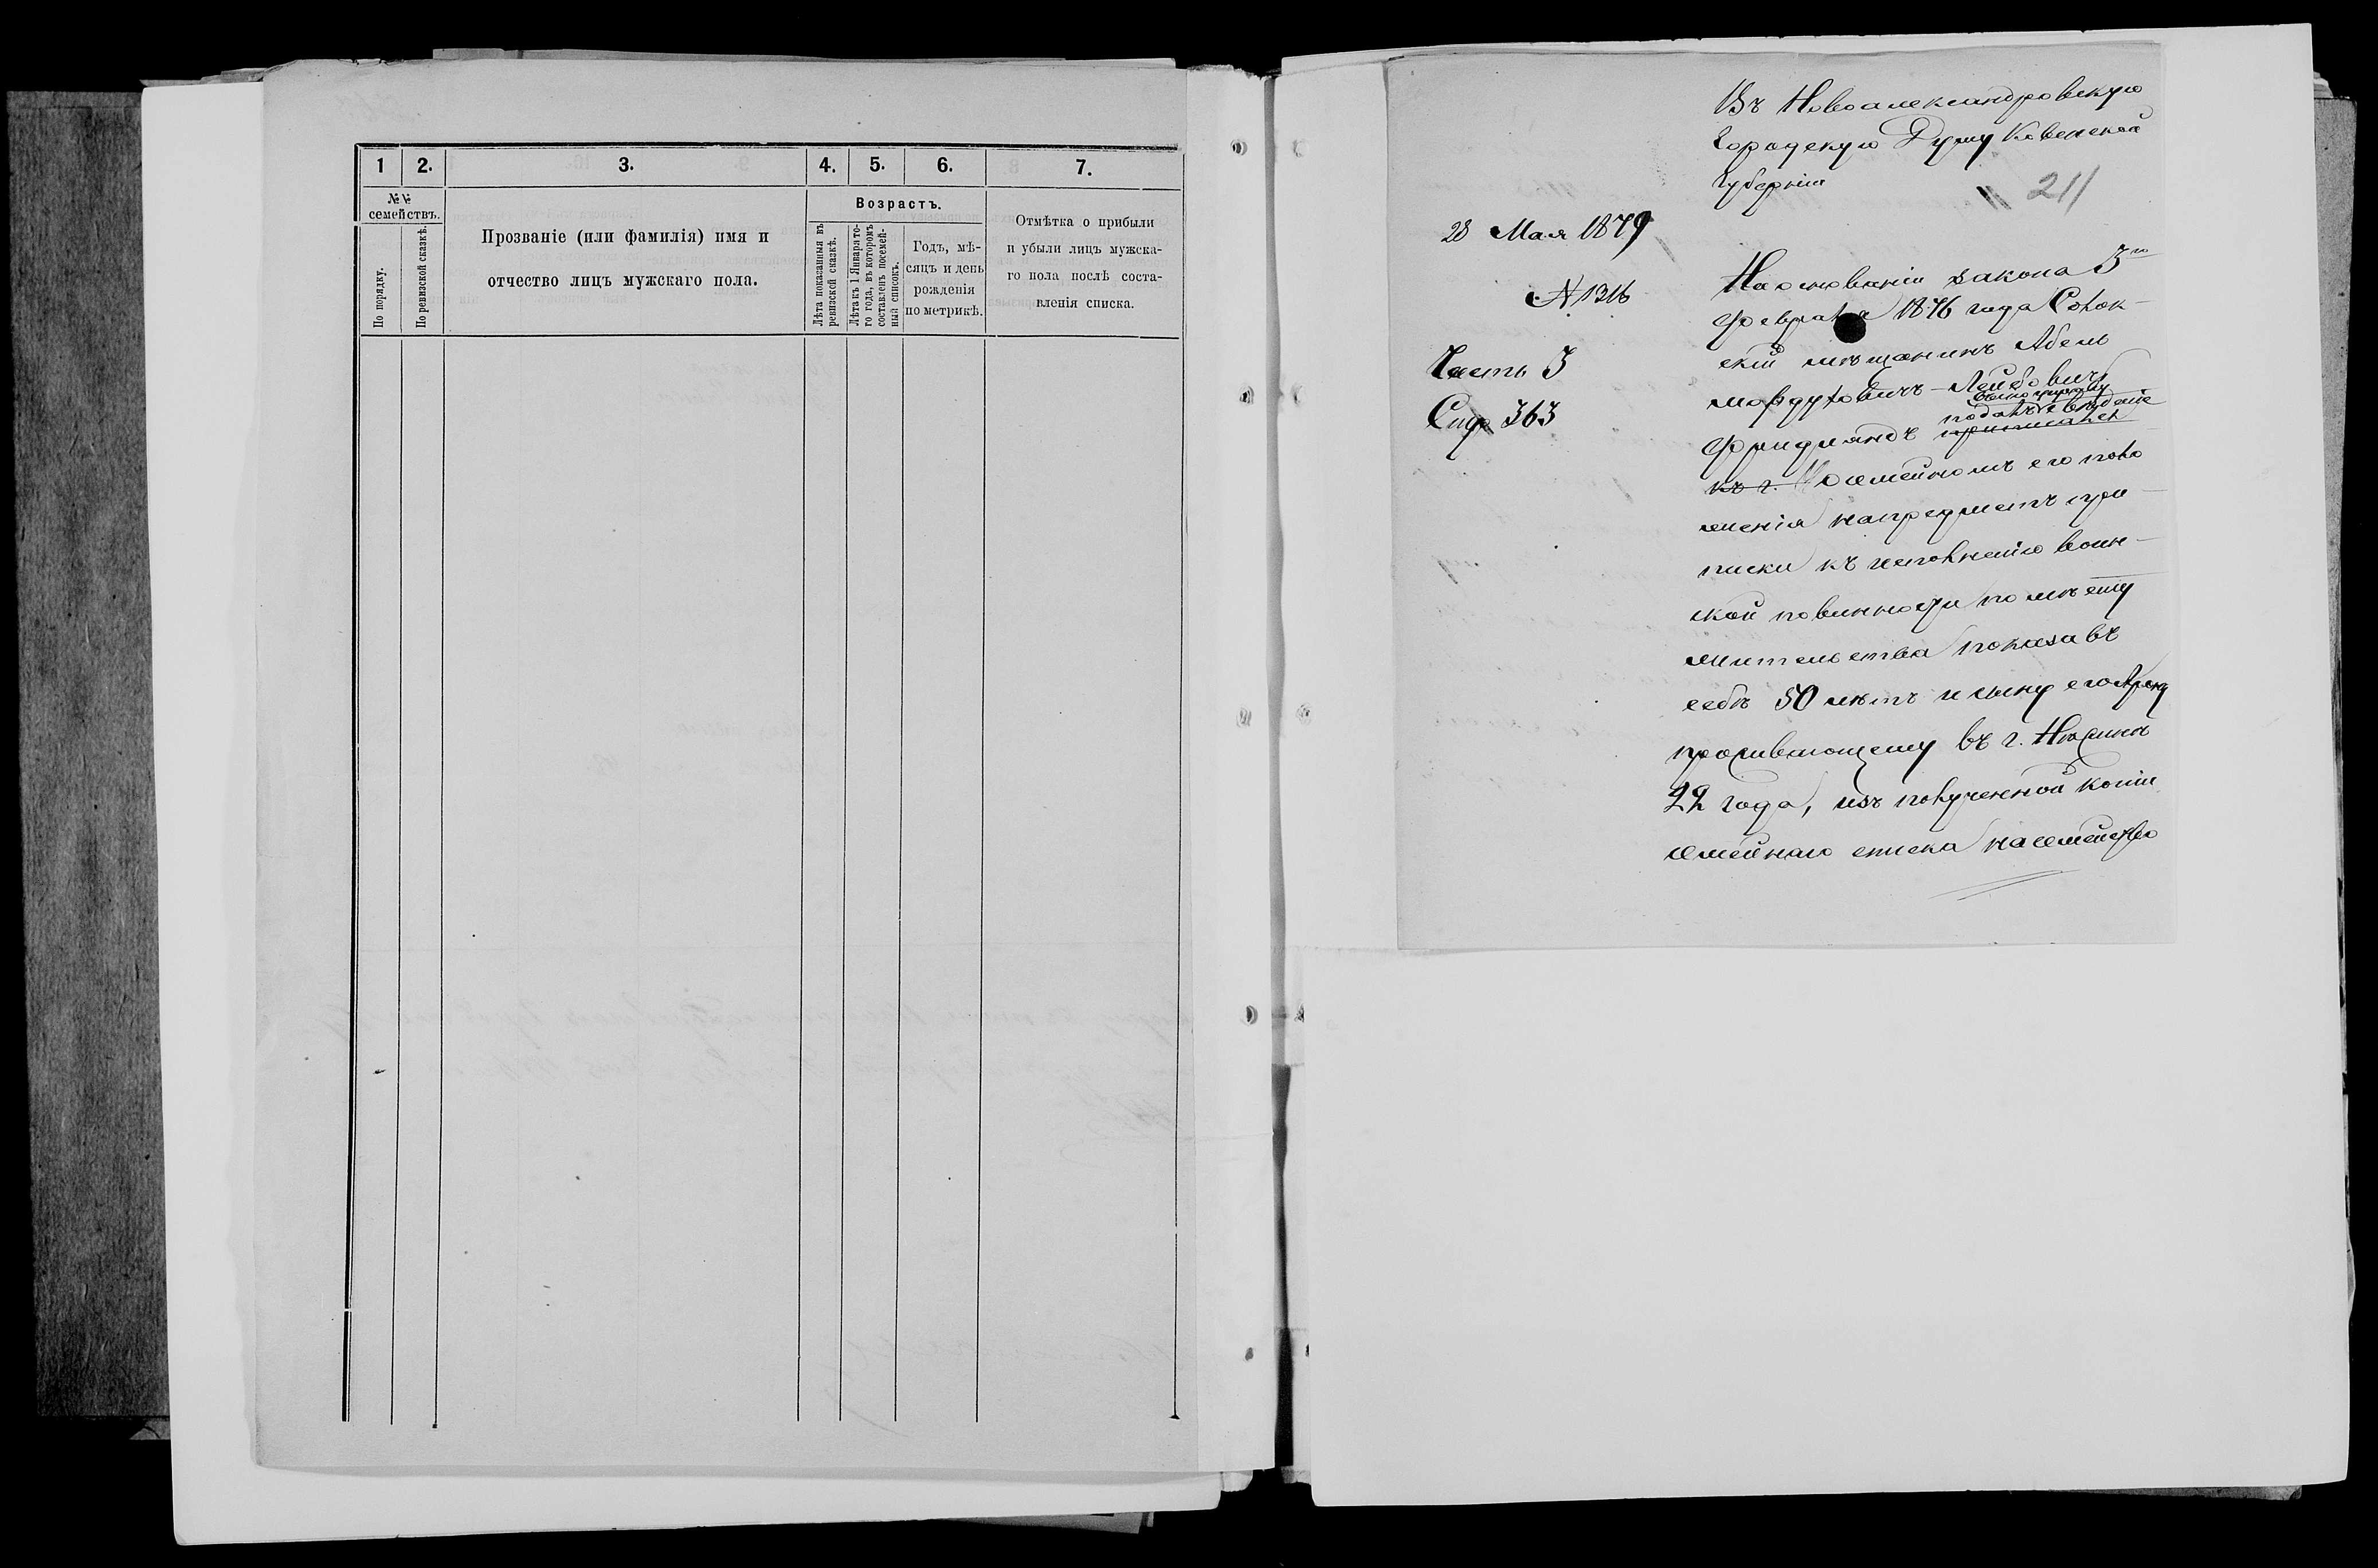 1 2. 3. 4. 5. 6. 7.
№№ семействъ.
По порядку.
По ревизской сказкѣ.
Прозваніе (или фамилія) имя и
отчество лицъ мужскаго пола.
Возрастъ.
Лѣта показанныя въ
ревизской сказкѣ.
Лѣта къ 1 Января то-
го года, въ которомъ
составленъ посемей-
ный списокъ.
Годъ, мѣ-
сяцъ и день
рожденія
по метрикѣ.
Отмѣтка о прибыли
и убыли лицъ мужска-
го пола послѣ соста-
вленія списка.
Въ Новоалександровскую
Городскую Думу Ковенской
Губерніи
211
28 Мая 1879
№ 1316
Часть 3
363
На основаніи закона 3го
Февраля 1876 года
скій мѣщанинъ Абель
Мордуховичъ-Лейбовичъ
Фридляндъ
къ г. о семейномъ его поло
женіи на предметъ при-
писки къ исполненію воин-
ской повинности по мѣсту
жительства показавъ
себѣ 50 лѣтъ и сыну его
проживающему въ г. Нѣжинѣ
22 года, изъ полученной копіи
семейнаго списка на семейство